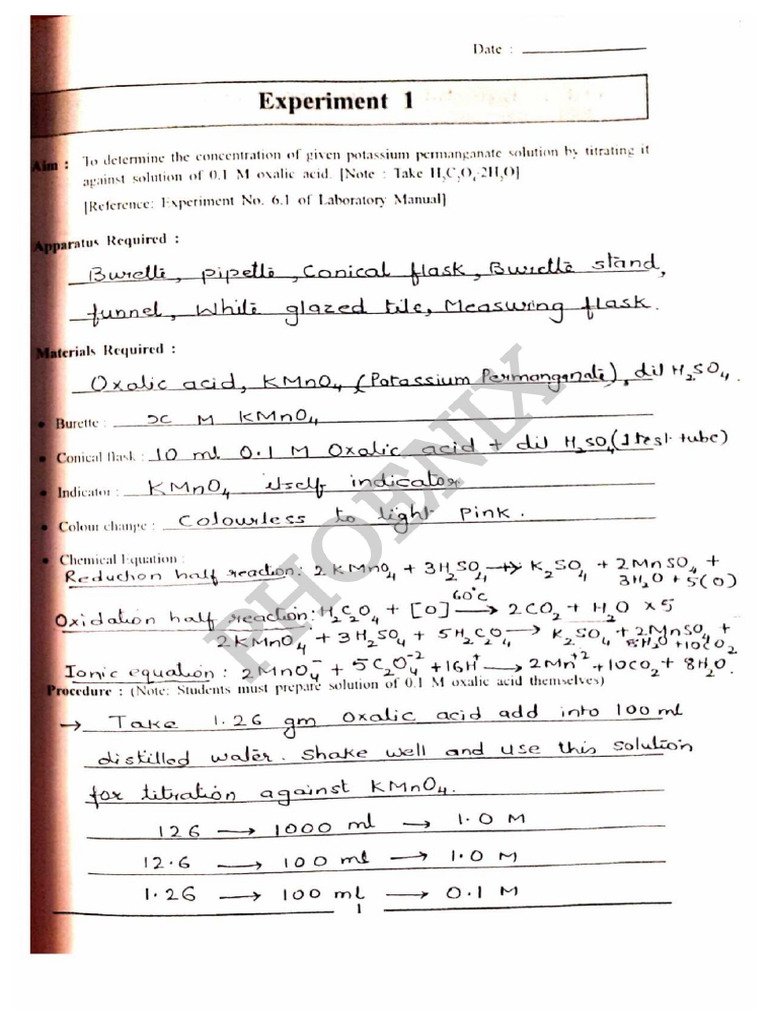 Date :
Experiment 1
Aim : To determine the concentration of given potassium permanganate solution by titrating it
against solution of 0.1 M oxalic acid. [Note : Take H₂C₂O₄·2H₂O]
[Reference: Experiment No. 6.1 of Laboratory Manual]
Apparatus Required :
Burette, pipette, Conical flask, Burette stand,
funnel, White glazed tile, Measuring flask.
Materials Required :
Oxalic acid, KMnO₄ (Potassium Permanganate), dil H₂SO₄.
• Burette : x M KMnO₄
• Conical flask : 10 ml 0.1 M Oxalic acid + dil H₂SO₄ (1 test tube)
• Indicator : KMnO₄ itself indicator
• Colour change : Colourless to light Pink.
• Chemical Equation :
Reduction half reaction: 2KMnO₄ + 3H₂SO₄ → K₂SO₄ + 2MnSO₄ +
3H₂O + 5(O)
60°C
Oxidation half reaction: H₂C₂O₄ + [O] → 2CO₂ + H₂O x5
2KMnO₄ + 3H₂SO₄ + 5H₂C₂O₄ → K₂SO₄ + 2MnSO₄ +
8H₂O + 10CO₂
Ionic equation : 2MnO₄⁻ + 5C₂O₄⁻² + 16H⁺ → 2Mn⁺² + 10CO₂ + 8H₂O.
Procedure : (Note: Students must prepare solution of 0.1 M oxalic acid themselves)
→ Take 1.26 gm Oxalic acid add into 100 ml
distilled water. Shake well and use this solution
for titration against KMnO₄.
126 → 1000 ml → 1.0 M
12.6 → 100 ml → 1.0 M
1.26 → 100 ml → 0.1 M
1
PHOENIX